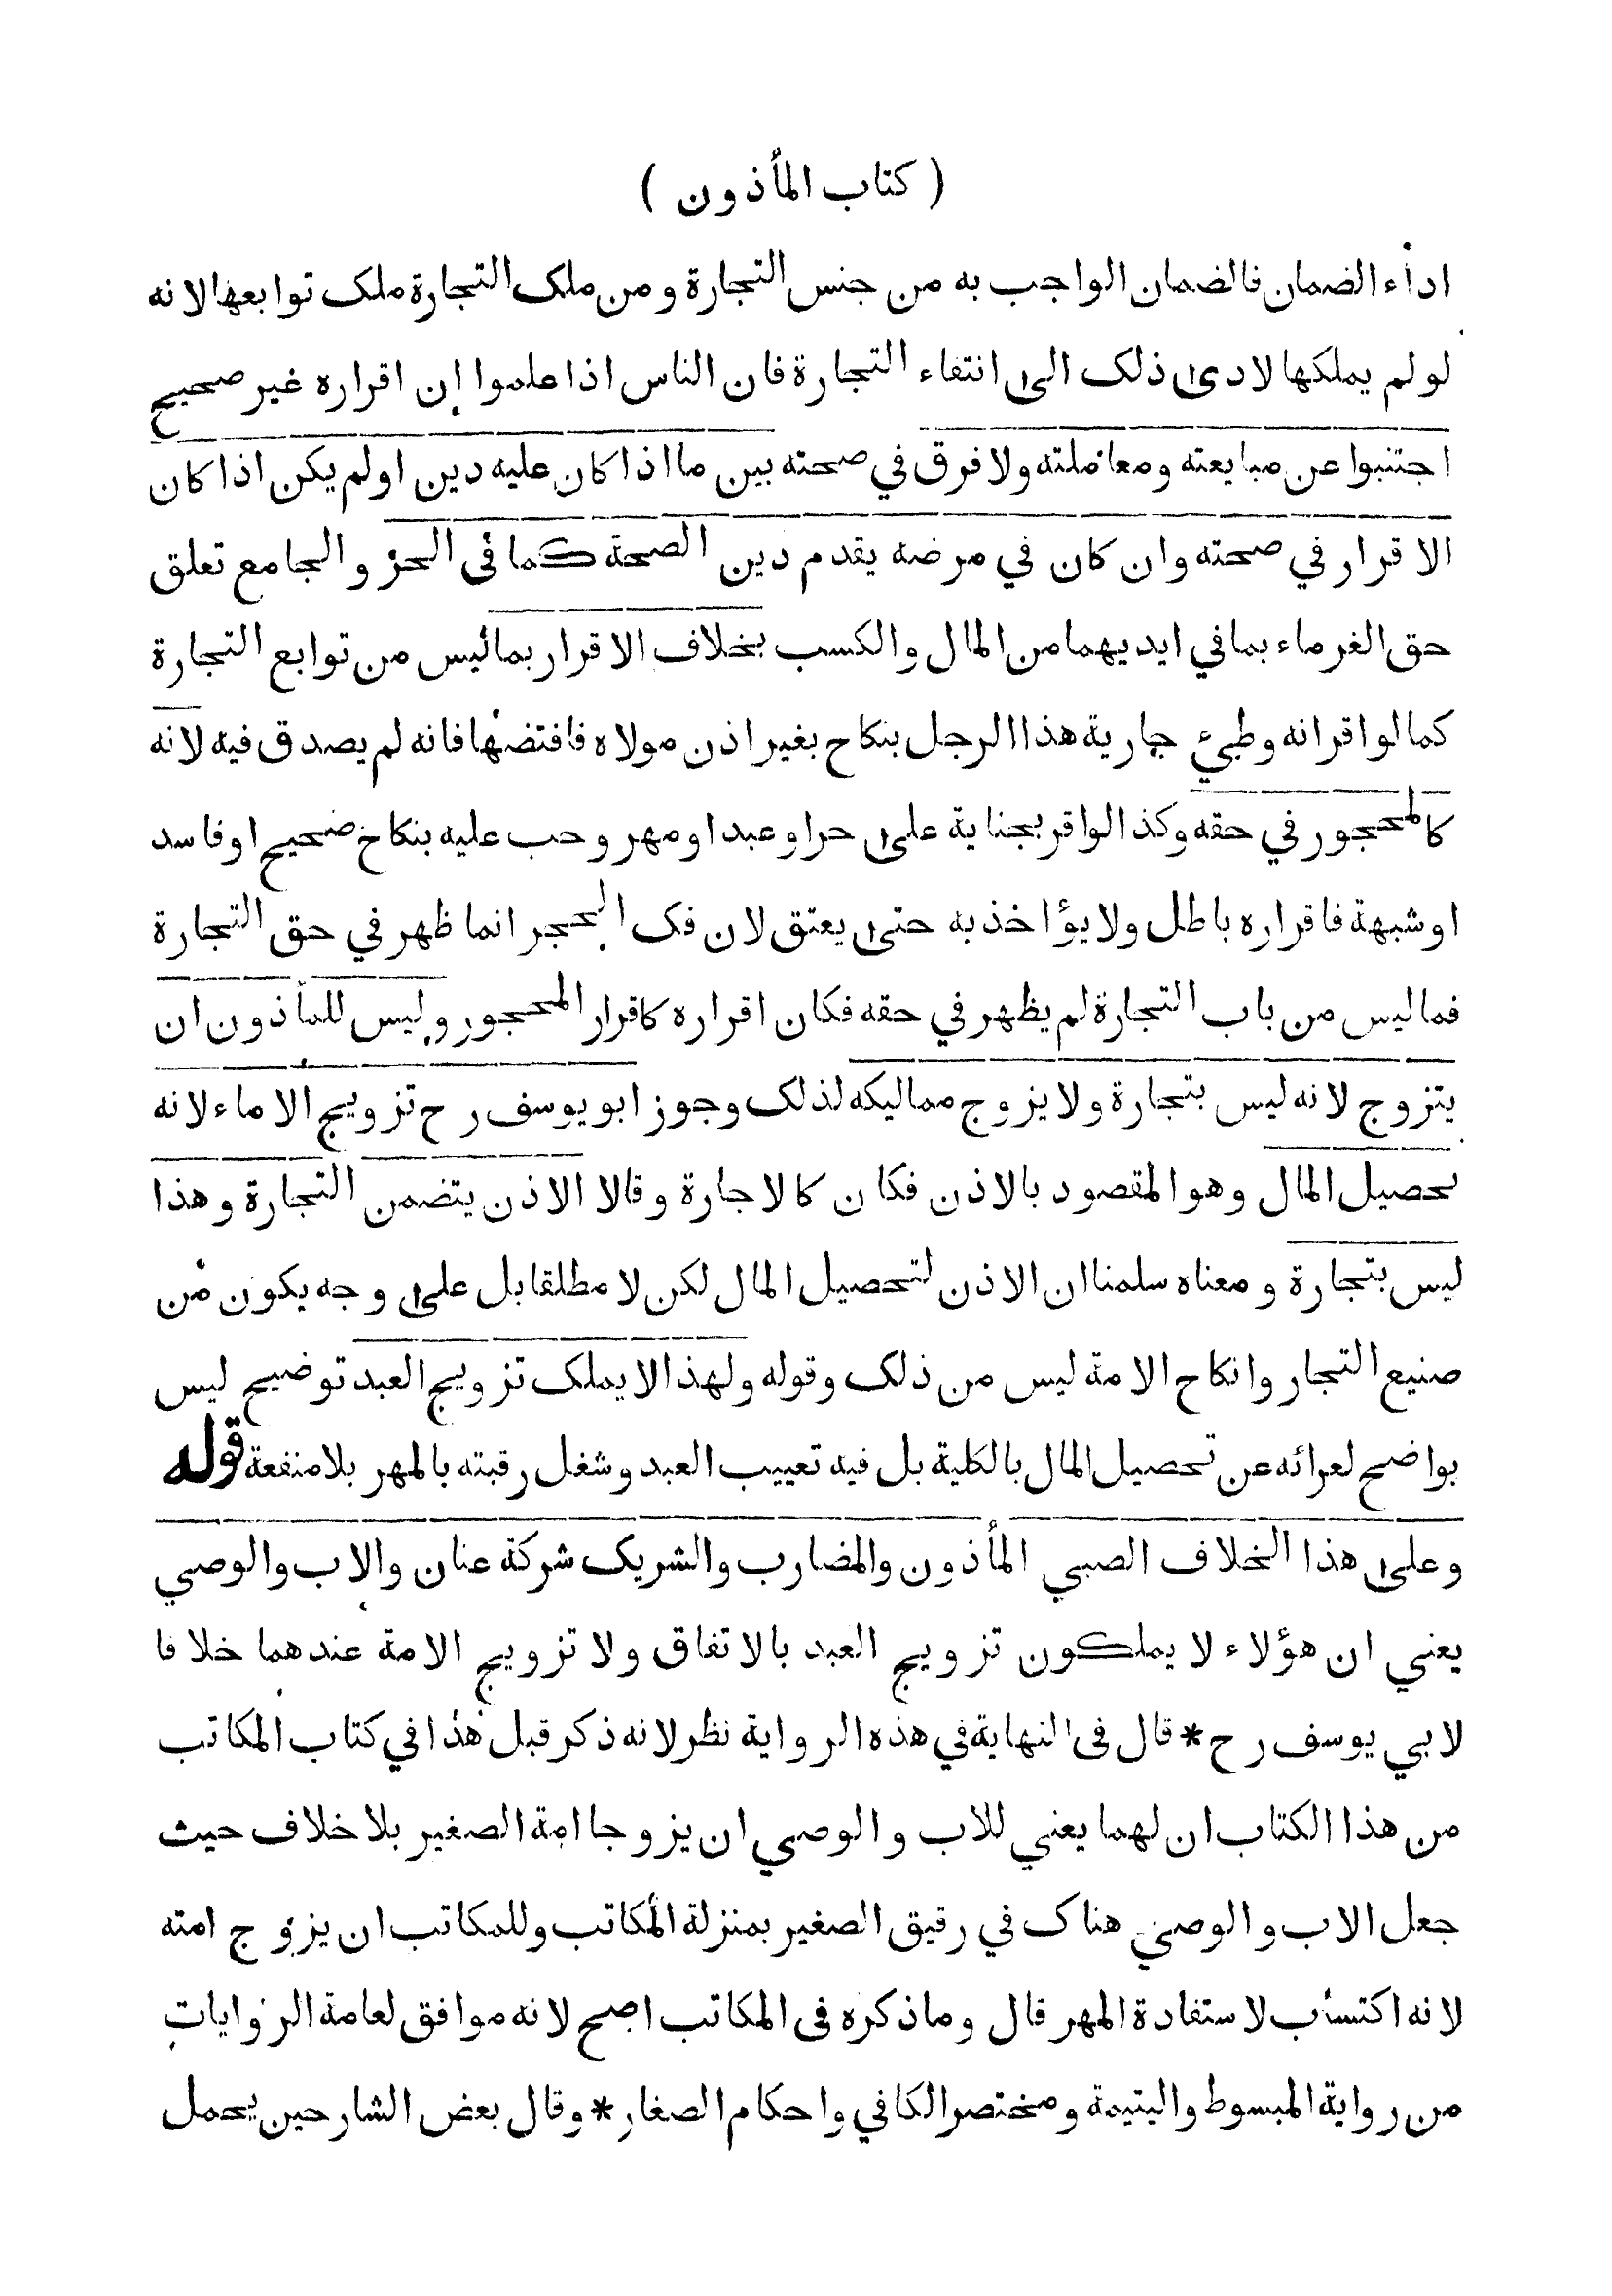 ( كتاب المأذون )
اداء الضمان فالضمان الواجب به من جنس التجارة ومن ملك التجارة ملك توابعها لانه
لو لم يملكها لادى ذلك الى انتفاء التجارة فان الناس اذا علموا ان اقراره غير صحيح
اجتنبوا عن مبايعته ومعاملته ولا فرق في صحته بين ما اذا كان عليه دين او لم يكن اذا كان
الاقرار في صحته وان كان في مرضه يقدم دين الصحة كما في الحر والجامع تعلق
حق الغرماء بما في ايديهما من المال والكسب بخلاف الاقرار بما ليس من توابع التجارة
كما لو اقر انه وطيء جارية هذا الرجل بنكاح بغير اذن مولاه فافتضها فانه لم يصدق فيه لانه
كالمحجور في حقه وكذا لو اقر بجناية على حر او عبد او مهر وجب عليه بنكاح صحيح او فاسد
او شبهة فاقراره باطل ولا يؤاخذ به حتى يعتق لان فك الحجر انما ظهر في حق التجارة
فما ليس من باب التجارة لم يظهر في حقه فكان اقراره كاقرار المحجور وليس للمأذون ان
يتزوج لانه ليس بتجارة ولا يزوج مماليكه لذلك وجوز ابو يوسف رح تزويج الاماء لانه
تحصيل المال وهو المقصود بالاذن فكان كالاجارة وقالا الاذن يتضمن التجارة وهذا
ليس بتجارة ومعناه سلمنا ان الاذن لتحصيل المال لكن لا مطلقا بل على وجه يكون من
صنيع التجار وانكاح الامة ليس من ذلك وقوله ولهذا لا يملك تزويج العبد توضيح ليس
بواضح لعرائه عن تحصيل المال بالكلية بل فيه تعييب العبد وشغل رقبته بالمهر بلا منفعة قوله
وعلى هذا الخلاف الصبي المأذون والمضارب والشريك شركة عنان والاب والوصي
يعني ان هؤلاء لا يملكون تزويج العبد بالاتفاق ولا تزويج الامة عندهما خلافا
لابي يوسف رح * قال في النهاية في هذه الرواية نظر لانه ذكر قبل هذا في كتاب المكاتب
من هذا الكتاب ان لهما يعني للاب والوصي ان يزوجا امة الصغير بلا خلاف حيث
جعل الاب والوصي هناك في رقيق الصغير بمنزلة المكاتب وللمكاتب ان يزوج امته
لانه اكتساب لاستفادة المهر قال وما ذكره في المكاتب اصح لانه موافق لعامة الروايات
من رواية المبسوط واليتيمة ومختصر الكافي واحكام الصغار * وقال بعض الشارحين يحمل